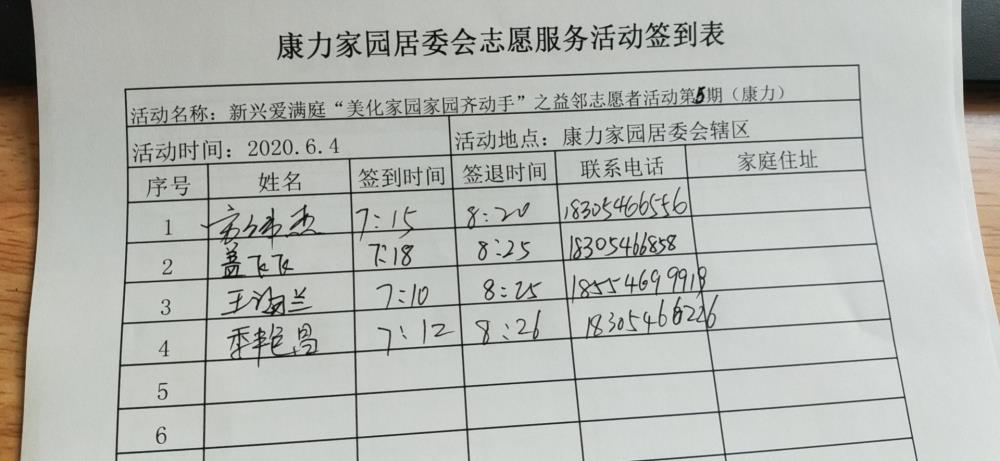 康力家园居委会志愿服务活动签到表
活动名称：新兴爱满庭“美化家园家园齐动手”之益邻志愿者活动第5期（康力）
活动时间：2020.6.4 活动地点：康力家园居委会辖区
序号 姓名 签到时间 签退时间 联系电话 家庭住址
1 7:15 8:20 18305466556
2 盖飞飞 7:18 8:25 18305466858
3 王海兰 7:10 8:25 18554699919
4 季艳昌 7:12 8:26 18305466226
5
6